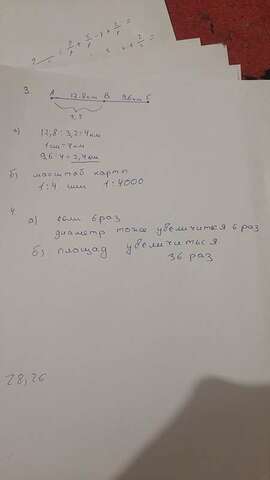 3.
A 12,8км B 9,6км Б
3,2
а) 12,8 : 3,2 = 4 км
1 см = 4 км
9,6 : 4 = 2,4 км
б) масштаб карты
1:4 или 1:4000
4.
а) если 6 раз
диаметр тоже увеличится 6 раз
б) площад увеличиться
36 раз
28,26